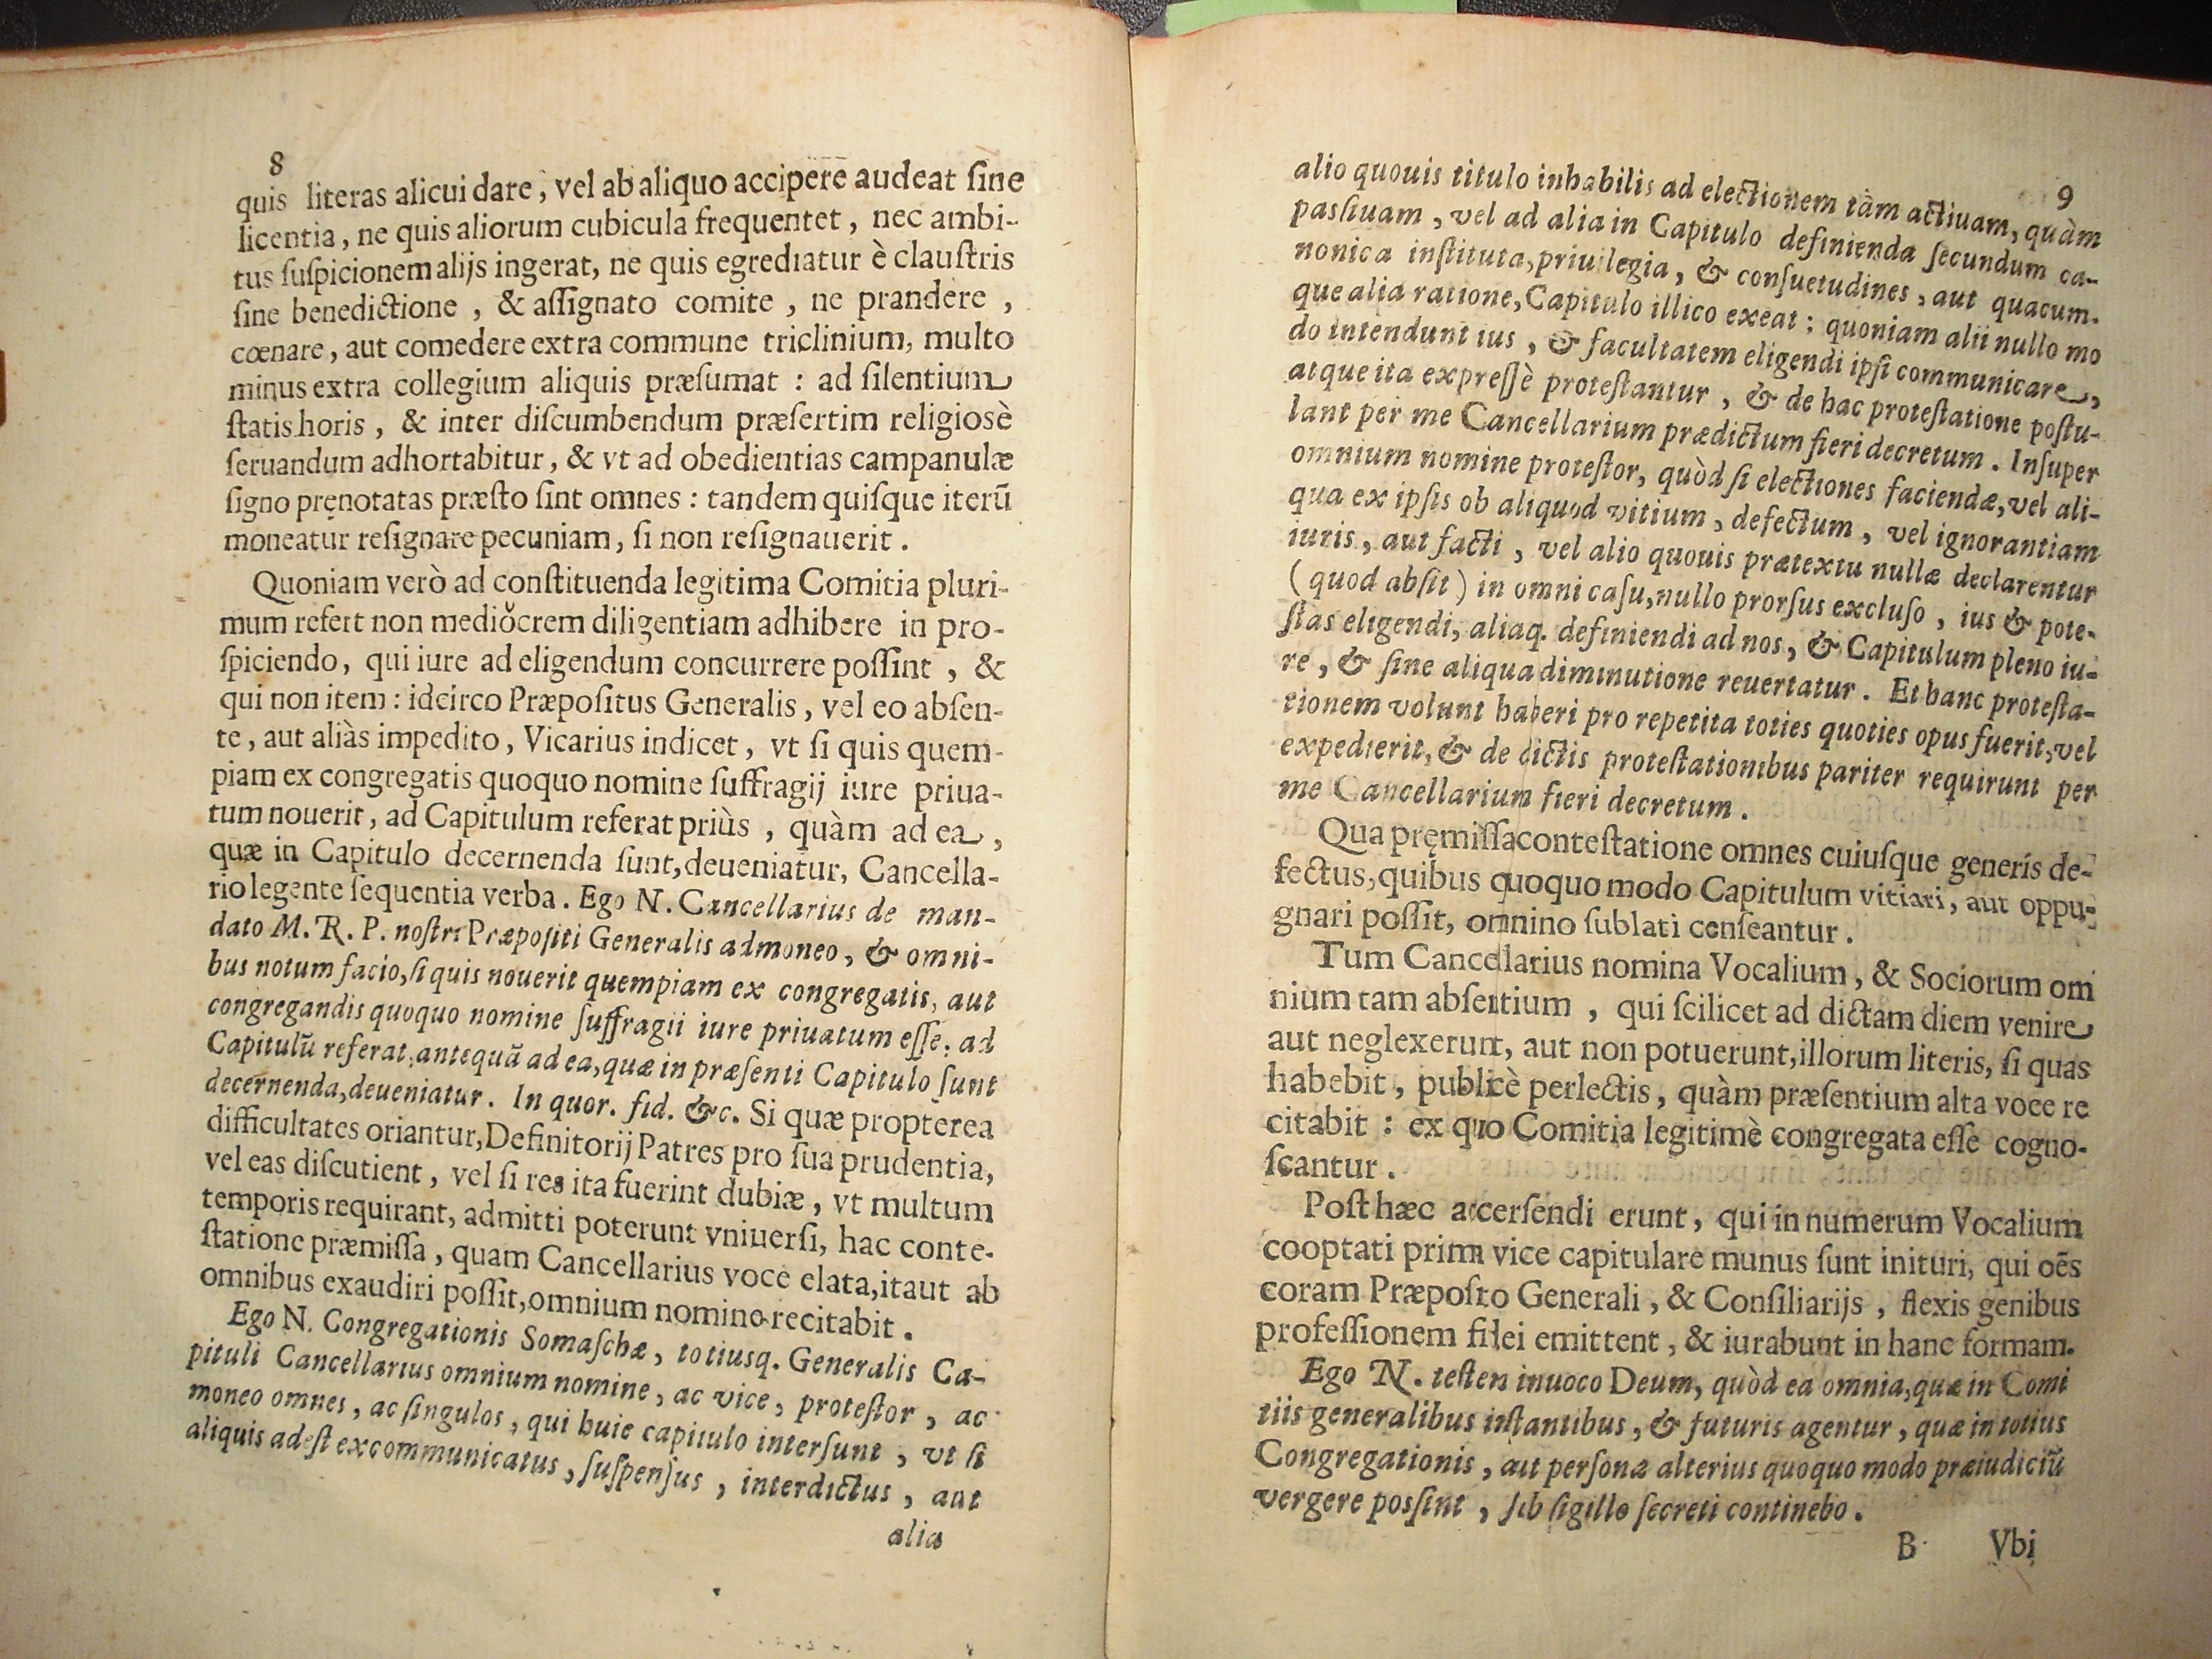 8
quis literas alicui dare, vel ab aliquo accipere audeat ſine
licentia, ne quis aliorum cubicula frequentet, nec ambi-
tus ſuſpicionem alijs ingerat, ne quis egrediatur è clauſtris
ſine benedictione, & aſſignato comite, ne prandere,
cœnare, aut comedere extra commune triclinium, multo
minus extra collegium aliquis præſumat: ad ſilentium
ſtatis horis, & inter diſcumbendum præſertim religiosè
ſeruandum adhortabitur, & vt ad obedientias campanulæ
ſigno pręnotatas præſto ſint omnes: tandem quiſque iterū
moneatur reſignare pecuniam, ſi non reſignauerit.
Quoniam verò ad conſtituenda legitima Comitia pluri-
mum refert non mediocrem diligentiam adhibere in pro-
ſpiciendo, qui iure ad eligendum concurrere poſſint, &
qui non item: idcirco Præpoſitus Generalis, vel eo abſen-
te, aut aliàs impedito, Vicarius indicet, vt ſi quis quem-
piam ex congregatis quoquo nomine ſuffragij iure priua-
tum nouerit, ad Capitulum referat priùs, quàm ad ea,
quæ in Capitulo decernenda ſunt, deueniatur, Cancella-
rio legente ſequentia verba. Ego N. Cancellarius de man-
dato M. R. P. noſtri Præpoſiti Generalis admoneo, & omni-
bus notum facio, ſi quis nouerit quempiam ex congregatis, aut
congregandis quoquo nomine ſuffragii iure priuatum eſſe, ad
Capitulū referat, antequā ad ea, quæ in præſenti Capitulo ſunt
decernenda, deueniatur. In quor. fid. &c. Si quæ propterea
difficultates oriantur, Definitorij Patres pro ſua prudentia,
vel eas diſcutient, vel ſi res ita fuerint dubiæ, vt multum
temporis requirant, admitti poterunt vniuerſi, hac conte-
ſtatione præmiſſa, quam Cancellarius voce elata, itaut ab
omnibus exaudiri poſſit, omnium nomine recitabit.
Ego N. Congregationis Somaſchæ, totiusq. Generalis Ca-
pituli Cancellarius omnium nomine, ac vice, proteſtor, ac
moneo omnes, ac ſingulos, qui huic capitulo interſunt, vt ſi
aliquis adeſt excommunicatus, ſuſpenſus, interdictus, aut
alia
9
alio quouis titulo inhabilis ad electionem tàm actiuam, quàm
paſſiuam, vel ad alia in Capitulo definienda ſecundum ca-
nonica inſtituta, priuilegia, & conſuetudines, aut quacum-
que alia ratione, Capitulo illico exeat; quoniam alii nullo mo
do intendunt ius, & facultatem eligendi ipſi communicare,
atque ita expreſſè proteſtantur, & de hac proteſtatione poſtu-
lant per me Cancellarium prædictum fieri decretum. Inſuper
omnium nomine proteſtor, quòd ſi electiones faciendæ, vel ali-
qua ex ipſis ob aliquod vitium, defectum, vel ignorantiam
iuris, aut facti, vel alio quouis prætextu nullæ declarentur
(quod abſit) in omni caſu, nullo prorſus excluſo, ius & pote-
ſtas eligendi, aliaq. definiendi ad nos, & Capitulum pleno iu-
re, & ſine aliqua diminutione reuertatur. Et hanc proteſta-
tionem volunt haberi pro repetita toties quoties opus fuerit, vel
expedierit, & de dictis proteſtationibus pariter requirunt per
me Cancellarium fieri decretum.
Qua pręmiſſa conteſtatione omnes cuiuſque generis de-
fectus, quibus quoquo modo Capitulum vitiari, aut oppu-
gnari poſſit, omnino ſublati cenſeantur.
Tum Cancellarius nomina Vocalium, & Sociorum om
nium tam abſentium, qui ſcilicet ad dictam diem venire
aut neglexerunt, aut non potuerunt, illorum literis, ſi quas
habebit, publicè perlectis, quàm præſentium alta voce re
citabit: ex quo Comitia legitimè congregata eſſe cogno-
ſcantur.
Poſt hæc accerſendi erunt, qui in numerum Vocalium
cooptati prima vice capitulare munus ſunt inituri, qui oēs
coram Præpoſito Generali, & Conſiliarijs, flexis genibus
profeſſionem fidei emittent, & iurabunt in hanc formam.
Ego N. teſtem inuoco Deum, quòd ea omnia, quæ in Comi
tiis generalibus inſtantibus, & futuris agentur, quæ in totius
Congregationis, aut perſonæ alterius quoquo modo præiudiciū
vergere poſſint, ſub ſigillo ſecreti continebo.
B Vbi